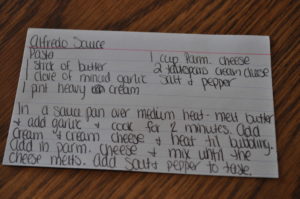 Alfredo Sauce
Pasta 1 cup Parm. cheese
1 stick of butter 2 tablespoons cream cheese
1 clove of minced garlic Salt & pepper
1 pint heavy cream
In a sauce pan over medium heat - melt butter
& add garlic & cook for 2 minutes. Add
cream & cream cheese & heat til bubbling.
Add in parm. cheese & mix until the
cheese melts. Add salt & pepper to taste.